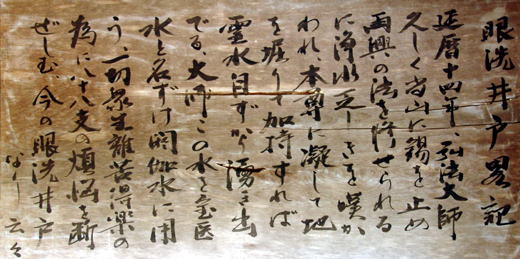 眼洗井戸畧記
延暦十四年、弘法大師
久しく当山に錫を止め
再興の法を修せられる
に浄水乏しきを嘆か
われ本尊に凝して地
を堀りて加持すれば
霊水自ずから湧き出
でる、大師この水を宝医
水と名ずけ閼伽水に用
う、一切衆生離苦得楽の
為に八十八支の煩悩を断
ぜしむ、今の眼洗井戸
なり 云々